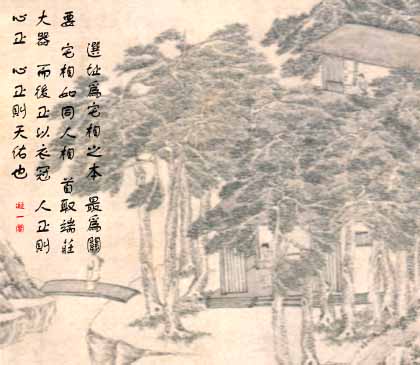 選址爲宅相之本 最爲關
要 宅相如同人相 首取端莊
大器 而後正以衣冠 人正則
心正 心正則天佑也
凝一閣